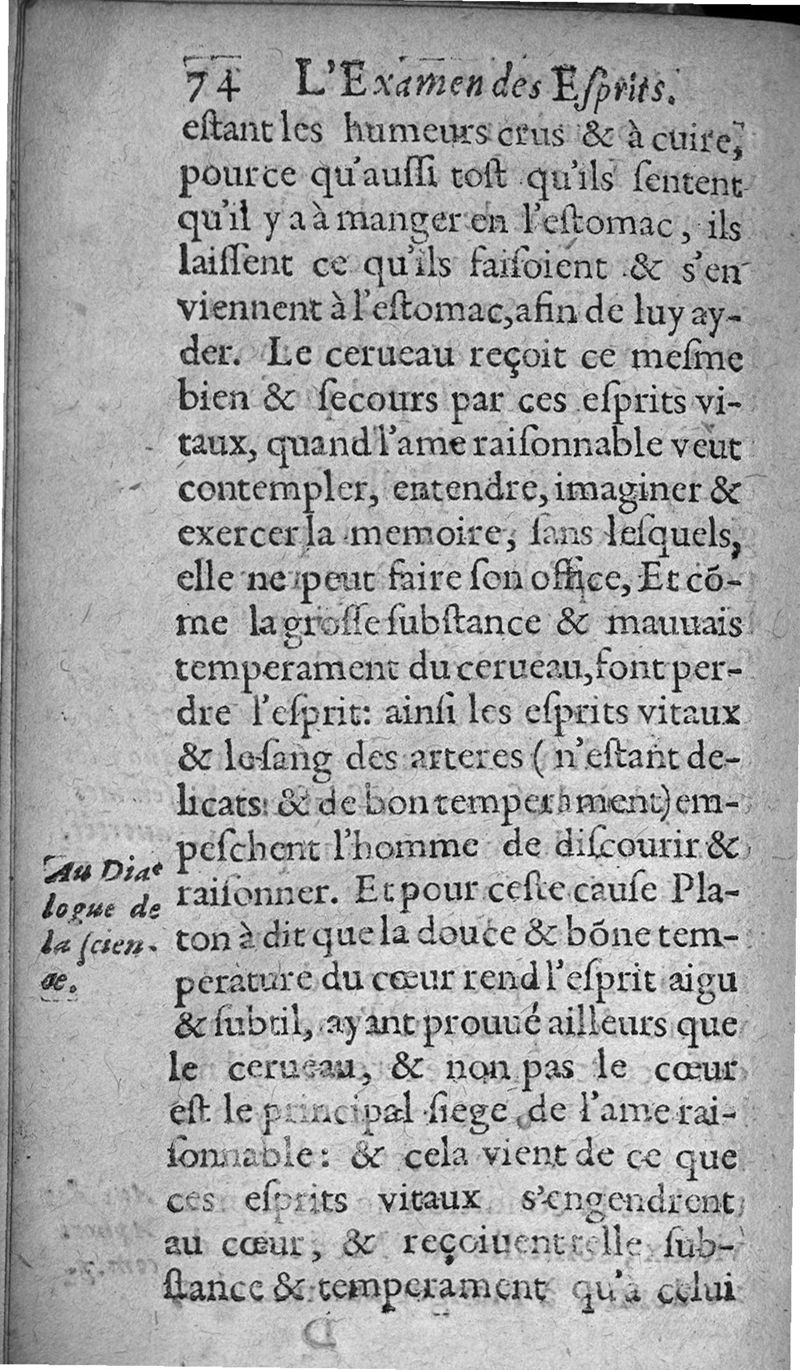 74 L'Examen des Eſprits.
eſtant les humeurs crus & à cuire,
pource qu'auſſi toſt qu'ils ſentent
qu'il y a à manger en l'eſtomac, ils
laiſſent ce qu'ils faiſoient & s'en
viennent à l'eſtomac, afin de luy ay-
der. Le cerueau reçoit ce meſme
bien & ſecours par ces eſprits vi-
taux, quand l'ame raiſonnable veut
contempler, entendre, imaginer &
exercer la memoire, ſans leſquels,
elle ne peut faire ſon office, Et cõ-
me la groſſe ſubſtance & mauuais
temperament du cerueau, font per-
dre l'eſprit: ainſi les eſprits vitaux
& le ſang des arteres (n'eſtant de-
licats & de bon temperament) em-
peſchent l'homme de diſcourir &
raiſonner. Et pour ceſte cauſe Pla-
ton à dit que la douce & bõne tem-
perature du cœur rend l'eſprit aigu
& ſubtil, ayant prouué ailleurs que
le cerueau, & non pas le cœur
eſt le principal ſiege de l'ame rai-
ſonnable: & cela vient de ce que
ces eſprits vitaux s'engendrent
au cœur, & reçoiuent telle ſub-
ſtance & temperament qu'a celui
Au Dia
logue de
la ſcien-
ce.